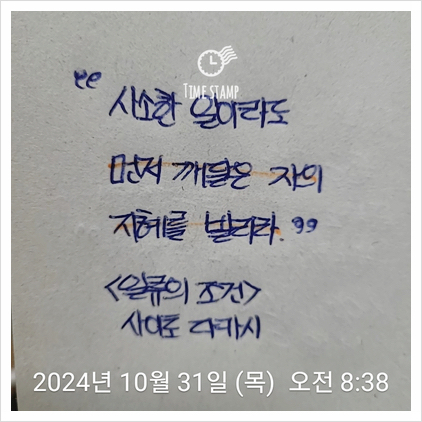 TIME STAMP
“사소한 일이라도
먼저 깨달은 자의
지혜를 빌려라.”
<일류의 조건>
사이토 다카시
2024년 10월 31일 (목) 오전 8:38